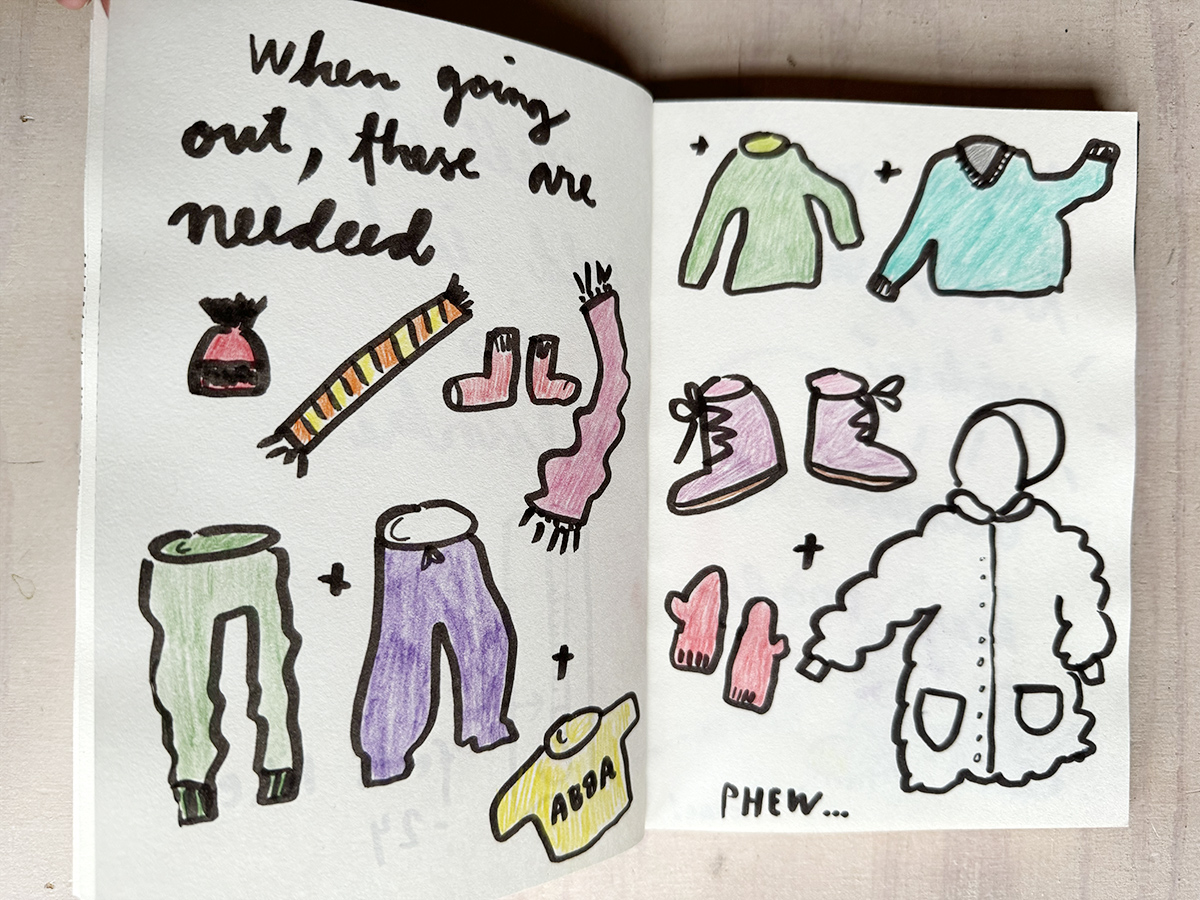 When going
out, these are
needeed
ABBA
PHEW...